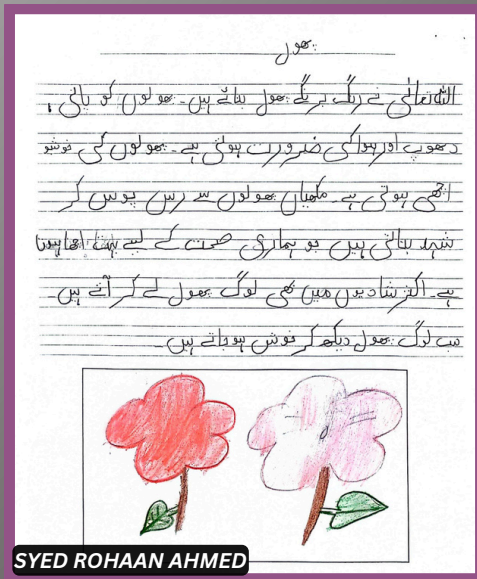 پھول
اللہ تعالٰی نے رنگ برنگے پھول بنائے ہیں۔ پھولوں کو پانی،
دھوپ اور ہوا کی ضرورت ہوتی ہے۔ پھولوں کی خوشبو
اچھی ہوتی ہے۔ مکھیاں پھولوں سے رس چوس کر
شہد بناتی ہیں جو ہماری صحت کے لیے بہت اچھا ہوتا
ہے۔ اکثر شادیوں میں بھی لوگ پھول لے کر آتے ہیں۔
سب لوگ پھول دیکھ کر خوش ہو جاتے ہیں۔
SYED ROHAAN AHMED